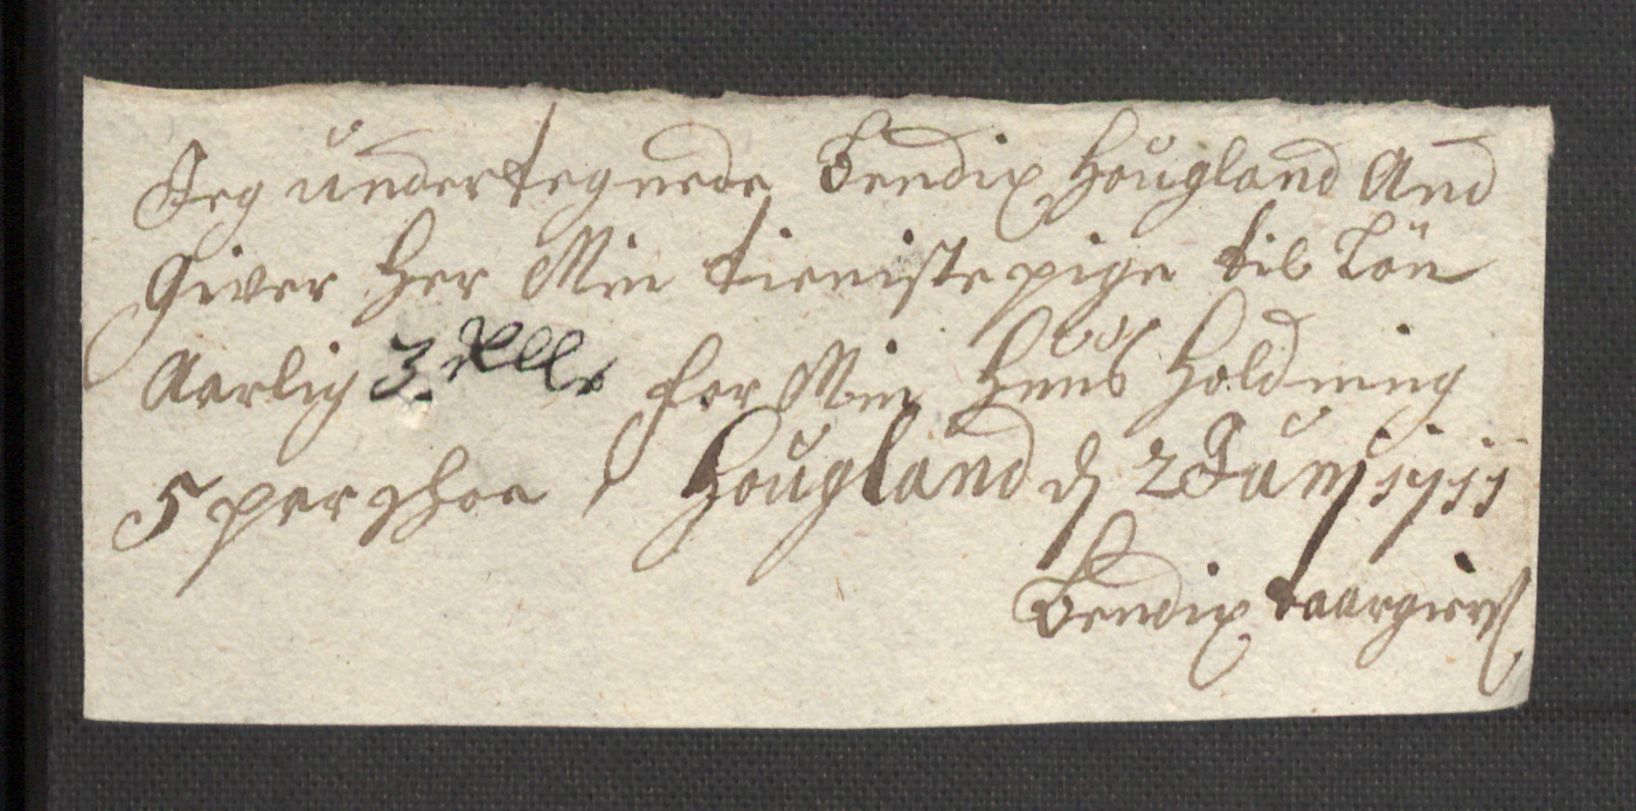 Jeg undertegnede Bendix Hougland And
Giver Her Min tieniste pige til Lön
Aarlig 3 Rdlr for Min Huus Holdning
5 par schoe / Hougland d 2 Junj 1711
Bendix baargiers